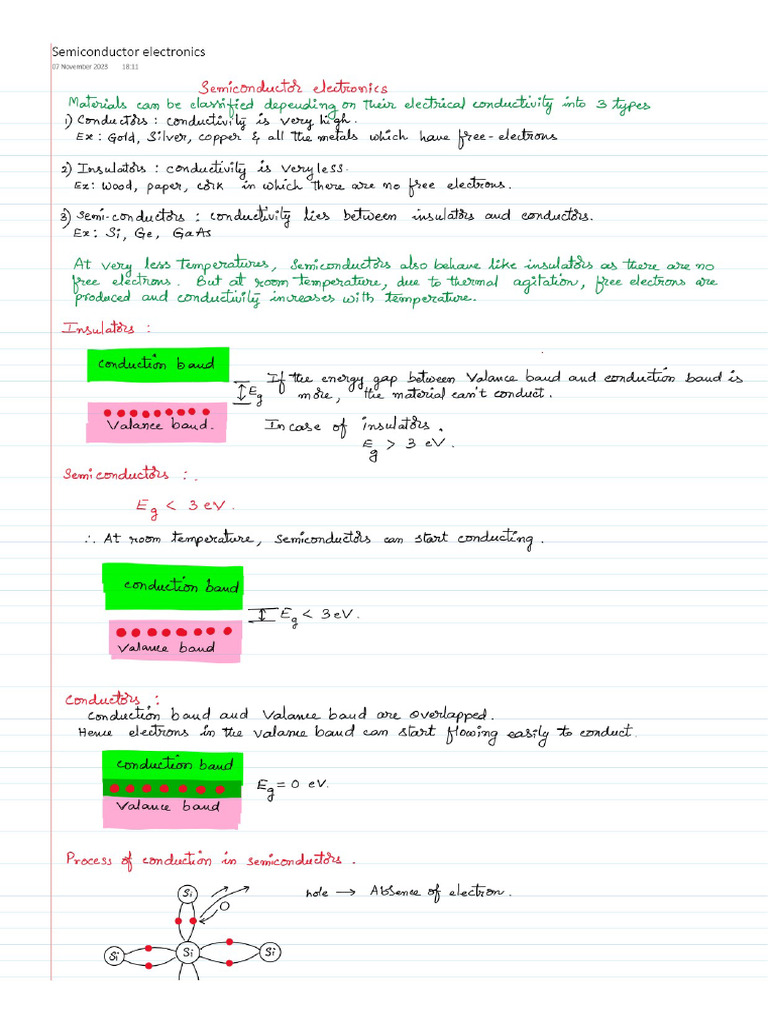 Semiconductor electronics
07 November 2023 18:11
Semiconductor electronics
Materials can be classified depending on their electrical conductivity into 3 types
1) Conductors : conductivity is very high.
Ex : Gold, Silver, copper & all the metals which have free-electrons
2) Insulators : conductivity is very less.
Ex: wood, paper, cork in which there are no free electrons.
3) Semi-conductors : conductivity lies between insulators and conductors.
Ex: Si, Ge, GaAs
At very less temperatures, Semiconductors also behave like insulators as there are no
free electrons. But at room temperature, due to thermal agitation, free electrons are
produced and conductivity increases with temperature.
Insulators :
conduction band
Valance band.
Eg
If the energy gap between Valance band and conduction band is
more, the material can't conduct.
In case of insulators.
Eg > 3 eV.
Semiconductors :.
Eg < 3 eV.
∴ At room temperature, semiconductors can start conducting.
conduction band
Valance band
Eg < 3 eV.
Conductors :
Conduction band and Valance band are overlapped.
Hence electrons in the valance band can start flowing easily to conduct.
conduction band
Valance band
Eg = 0 eV.
Process of conduction in semiconductors.
Si
hole → Absence of electron.
Si
Si
Si